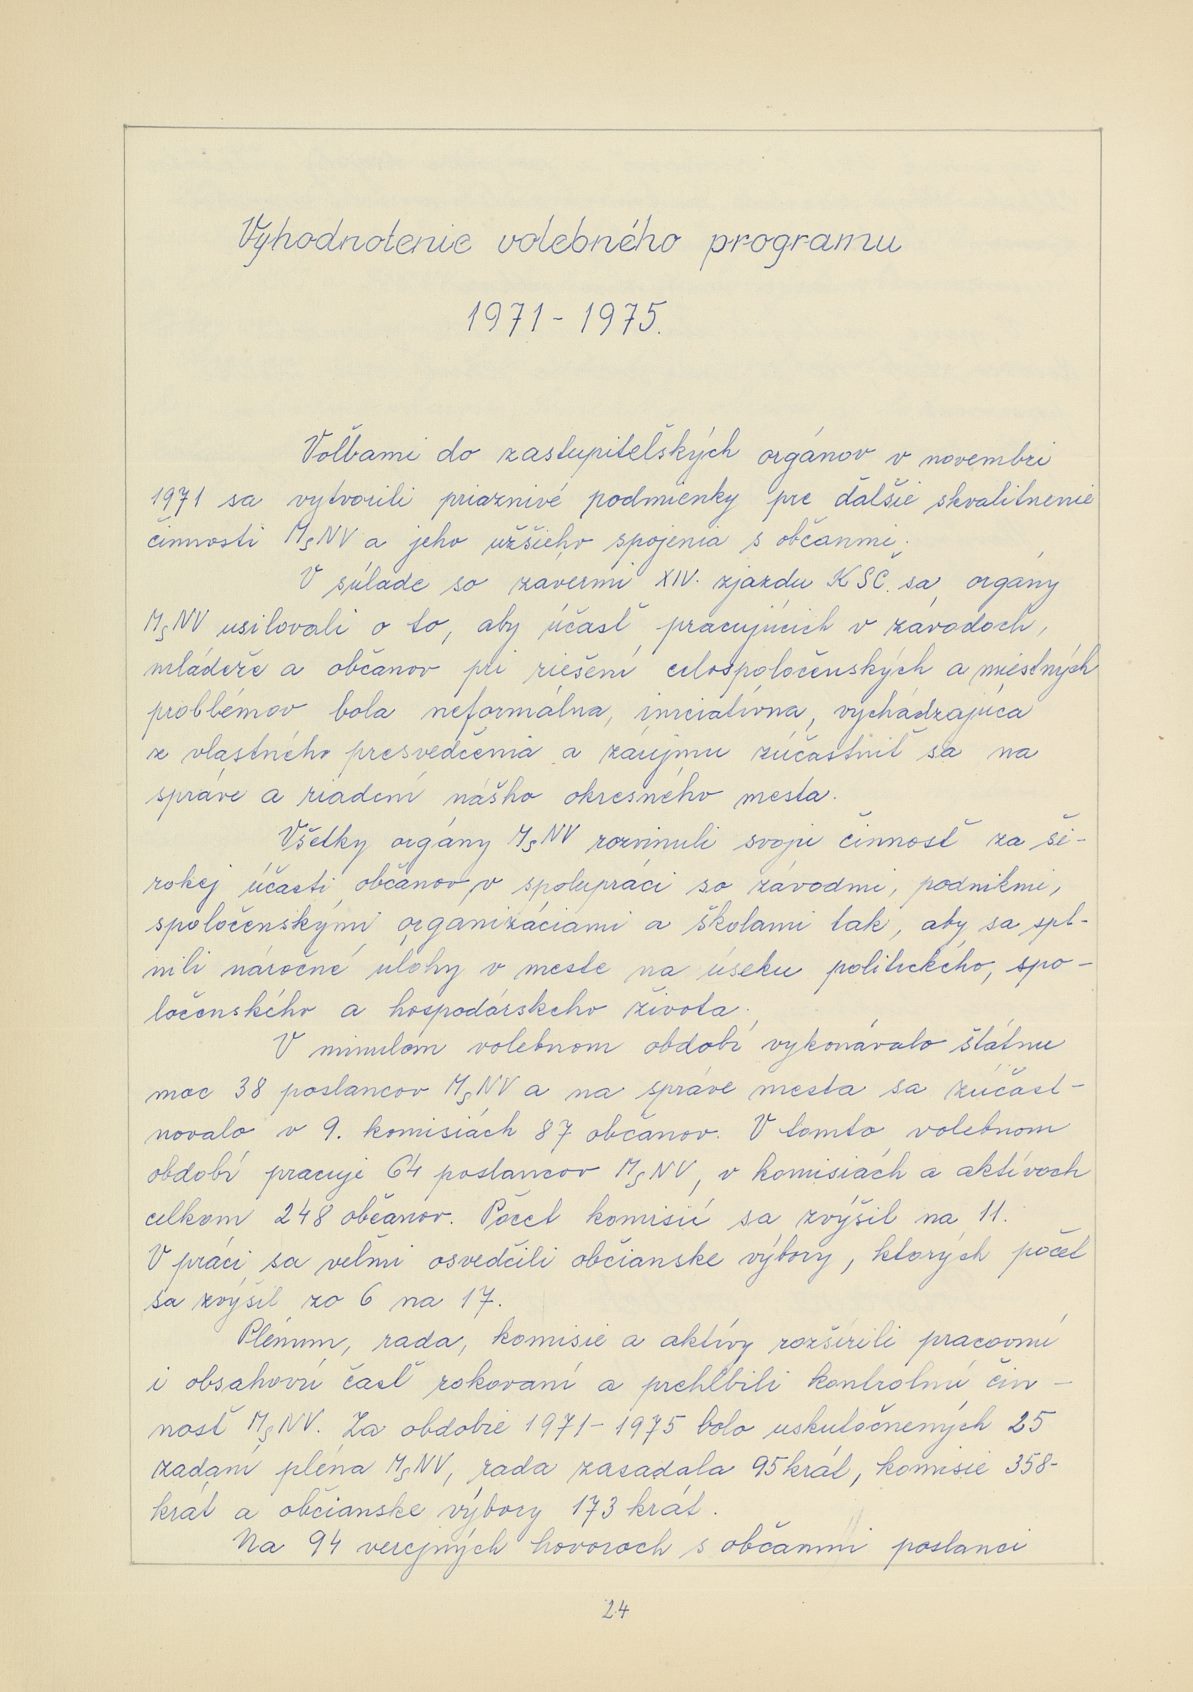 Vyhodnotenie volebného programu
1971 - 1975.
Voľbami do zastupiteľských orgánov v novembri
1971 sa vytvorili priaznivé podmienky pre ďalšie skvalitnenie
činnosti MsNV a jeho užšieho spojenia s občanmi.
V súlade so závermi XIV. zjazdu KSČ. sa orgány
MsNV usilovali o to, aby účasť pracujúcich v závodoch,
mládeže a občanov pri riešení celospoločenských a miestných
problémov bola neformálna, iniciatívna, vychádzajúca
z vlastného presvedčenia a záujmu zúčastniť sa na
správe a riadení nášho okresného mesta.
Všetky orgány MsNV rozvinuli svoju činnosť za ši-
rokej účasti občanov, v spolupráci so závodmi, podnikmi,
spoločenskými organizáciami a školami tak, aby sa spl-
nili náročné úlohy v meste na úseku politického, spo-
ločenského a hospodárskeho života.
V minulom volebnom období vykonávalo štátnu
moc 38 poslancov MsNV a na správe mesta sa zúčast-
novalo v 9. komisiách 87 občanov. V tomto volebnom
období pracuje 64 poslancov MsNV, v komisiách a aktívoch
celkom 248 občanov. Počet komisií sa zvýšil na 11.
V práci sa veľmi osvedčili občianske výbory, ktorých počet
sa zvýšil zo 6 na 17.
Plénum, rada, komisie a aktívy rozšírili pracovnú
i obsahovú časť rokovaní a prehĺbili kontrolnú čin-
nosť MsNV. Za obdobie 1971 - 1975 bolo uskutočnených 25
zadaní pléna MsNV, rada zasadala 95 krát, komisie 358-
krát a občianske výbory 173 krát.
Na 94 verejných hovoroch s občanmi poslanci
24